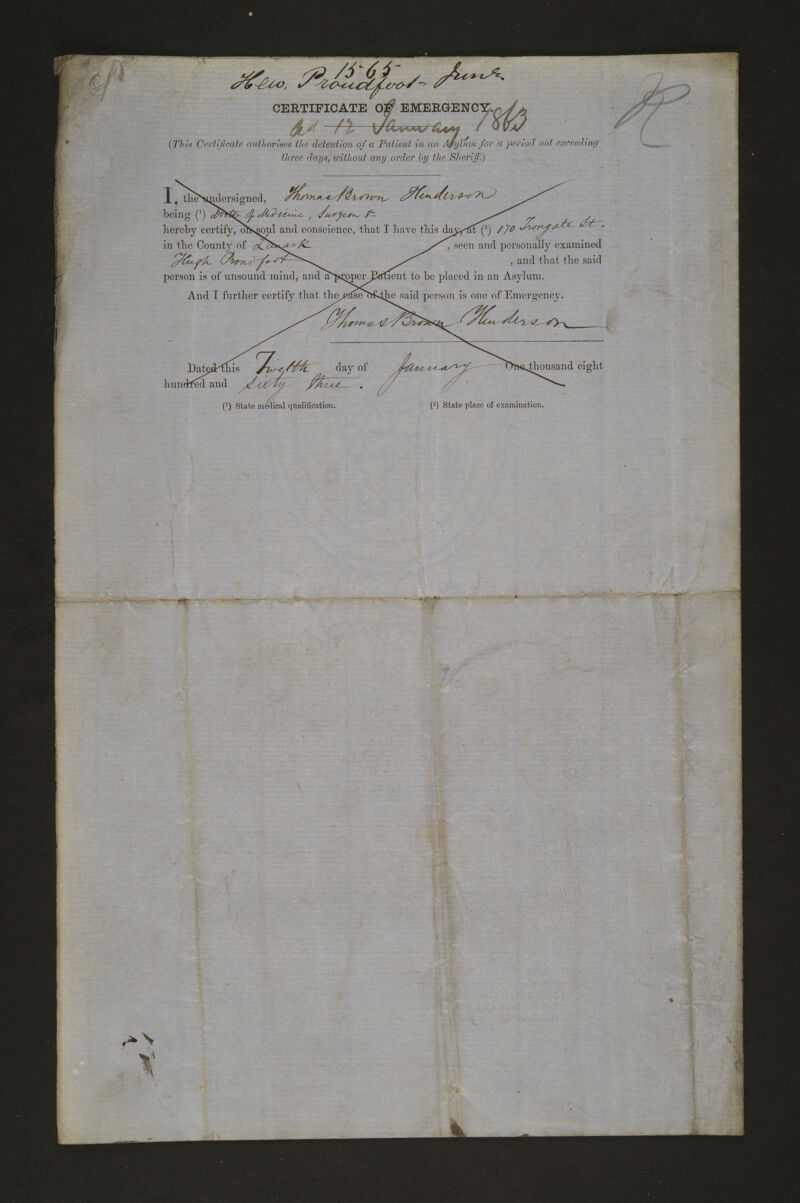 1565
Hew. Proudfoot Junr.
CERTIFICATE OF EMERGENCY.
Ad 12 January 1863
(This Certificate authorises the detention of a Patient in an Asylum for a period not exceeding
three days, without any order by the Sheriff.)
I, the undersigned, Thomas Brown Henderson
being (¹) Doctor of Medicine, Surgeon &c
hereby certify, on soul and conscience, that I have this day, at (²) 170 Trongate St.
in the County of Lanark , seen and personally examined
Hugh Proudfoot , and that the said
person is of unsound mind, and a proper Patient to be placed in an Asylum.
And I further certify that the case of the said person is one of Emergency.
Thomas Brown Henderson
Dated this Twelfth day of January One thousand eight
hundred and sixty three.
(¹) State medical qualification. (²) State place of examination.